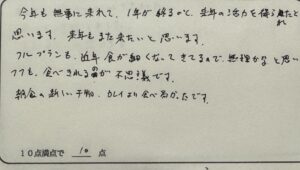 今年も無事に来れて、1年が終るかと、来年の活力を得られたと
思います。来年もまた来たいと思います。
フルプランも、近年食が細くなってきてるので、無理かなと思い
つも、食べきれるのが不思議です。
朝食の新しい干物、カレイより食べ易かったです。
10点満点で 10 点